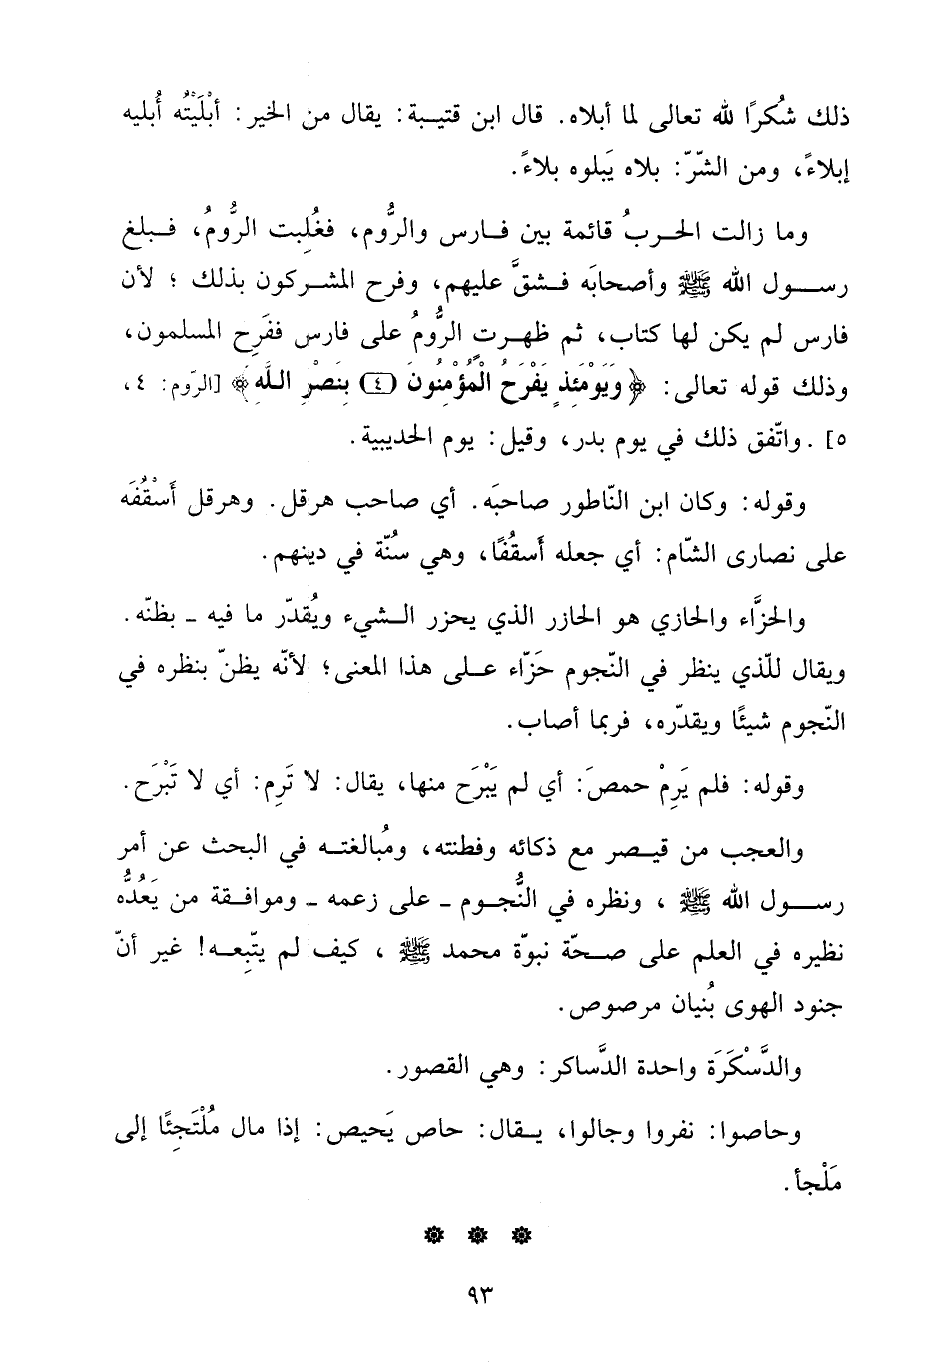 ذلك شُكرًا لله تعالى لما أبلاه. قال ابن قتيبة: يقال من الخير: أبْلَيْتُه أُبليه
إبلاءً، ومن الشّرّ: بلاه يَبلوه بلاءً.
وما زالت الحربُ قائمة بين فارس والرُّوم، فغُلِبت الرُّومُ، فبلغ
رسول الله ﷺ وأصحابَه فشقَّ عليهم، وفرح المشركون بذلك؛ لأن
فارس لم يكن لها كتاب، ثم ظهرت الرُّومُ على فارس ففَرِح المسلمون،
وذلك قوله تعالى: ﴿وَيَوْمَئِذٍ يَفْرَحُ الْمُؤْمِنُونَ (٤) بِنَصْرِ اللَّهِ﴾ [الرّوم: ٤،
٥]. واتّفق ذلك في يوم بدر، وقيل: يوم الحديبية.
وقوله: وكان ابن النّاطور صاحبَه. أي صاحب هرقل. وهرقل أَسْقُفَه
على نصارى الشّام: أي جعله أَسقُفًا، وهي سُنّة في دينهم.
والحزَّاء والحازي هو الحازر الذي يحزر الشيء ويُقدّر ما فيه - بظنّه.
ويقال للّذي ينظر في النّجوم حَزّاء على هذا المعنى؛ لأنّه يظنّ بنظره في
النّجوم شيئًا ويقدّره، فربما أصاب.
وقوله: فلم يَرِمْ حمصَ: أي لم يَبْرَح منها، يقال: لا تَرِم: أي لا تَبْرَح.
والعجب من قيصر مع ذكائه وفطنته، ومُبالغته في البحث عن أمر
رسول الله ﷺ، ونظره في النُّجوم - على زعمه - وموافقة من يَعُدُّه
نظيره في العلم على صحّة نبوّة محمد ﷺ، كيف لم يتّبِعه! غير أنّ
جنود الهوى بُنيان مرصوص.
والدَّسْكَرَة واحدة الدَّساكر: وهي القصور.
وحاصوا: نفروا وجالوا، يقال: حاص يَحيص: إذا مال مُلْتَجِئًا إلى
مَلْجأ.
٩٣